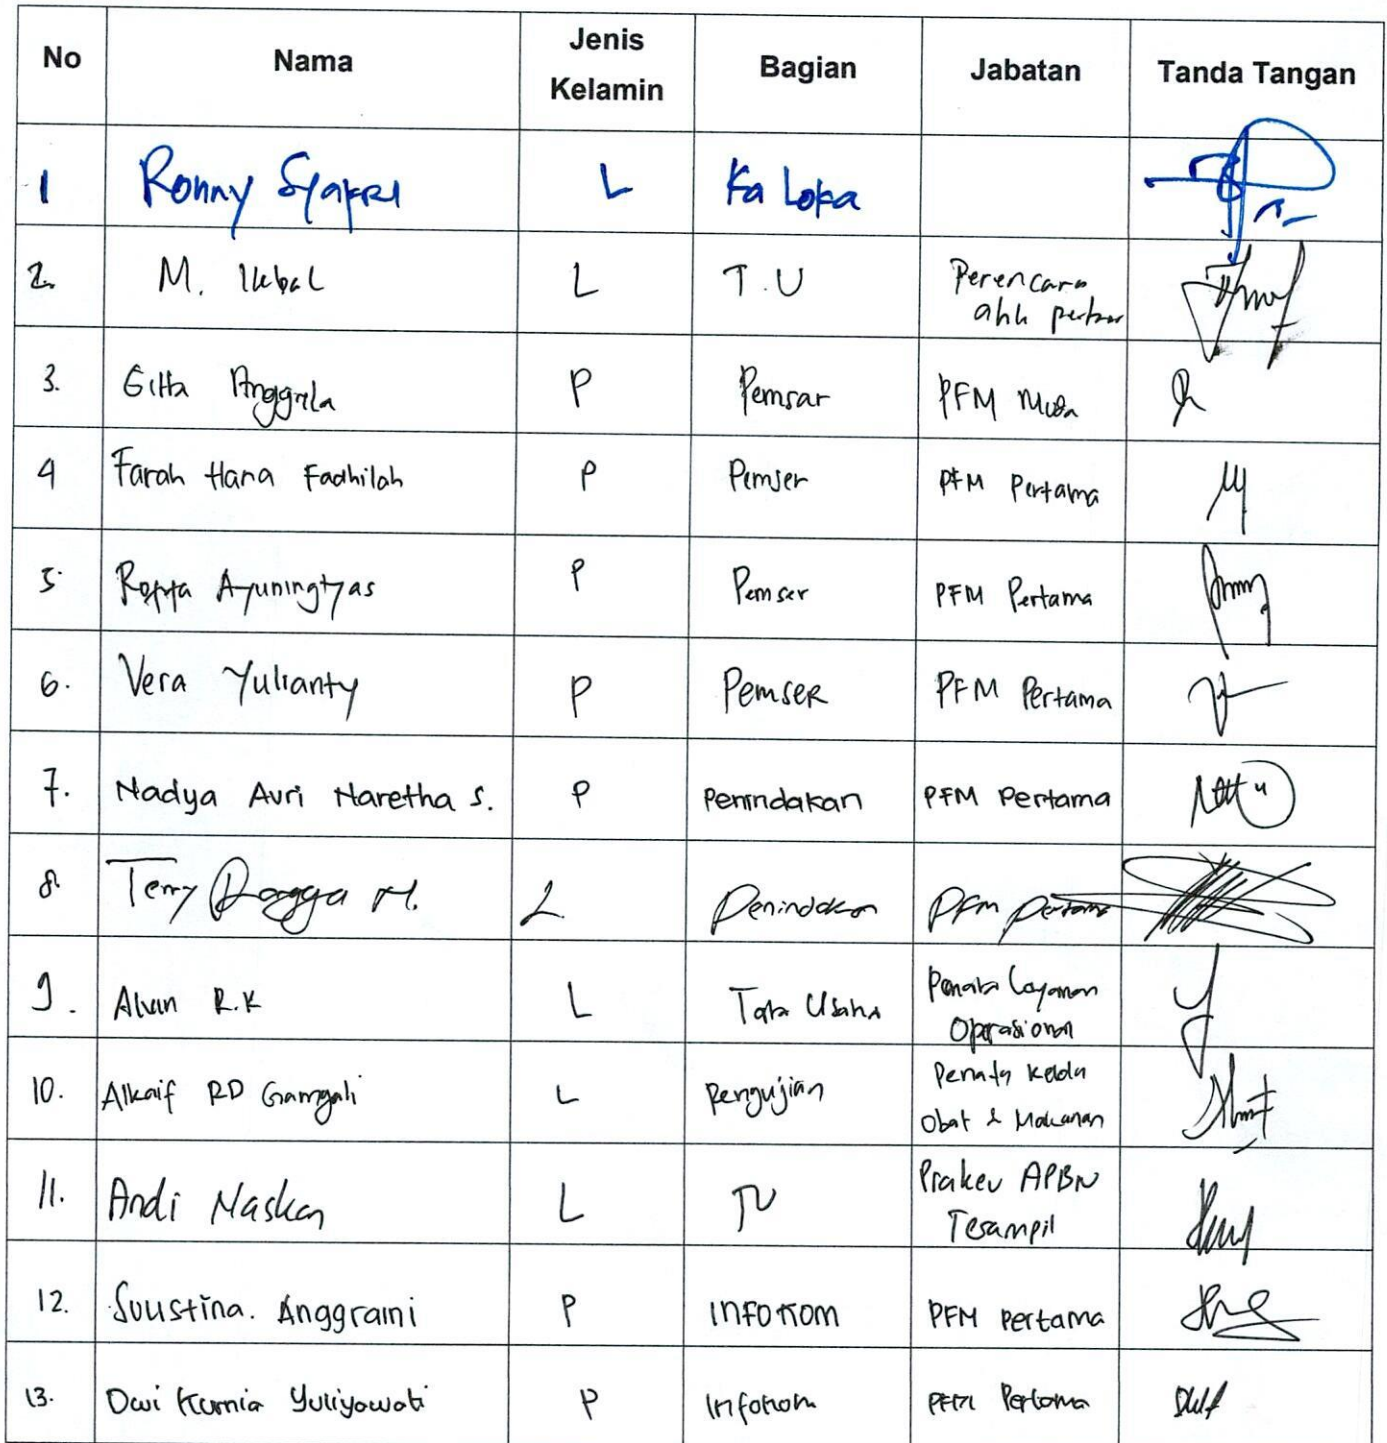 No Nama Jenis Kelamin Bagian Jabatan Tanda Tangan
1 Ronny Syafri L Ka Loka
2. M. Ikbal L T.U Perencana
ahli
3. Gitta P Pemsar PFM Muda
4 Farah Hana Fadhilah P Pemser PFM Pertama
5. Ayuningtyas P Pemser PFM Pertama
6. Vera Yulianty P Pemser PFM Pertama
7. Nadya Avri Naretha S. P Penindakan PFM Pertama
8. Terry M. L Penindakan PFM Pertama
9. Alvin R.K L Tata Usaha Penata Layanan
Operasional
10. Alkaif RD L Pengujian Penata
Obat & Makanan
11. Andi L TU APBN
12. Anggraini P INFOKOM PFM Pertama
13. Dwi Kurnia P Infokom PFM Pertama